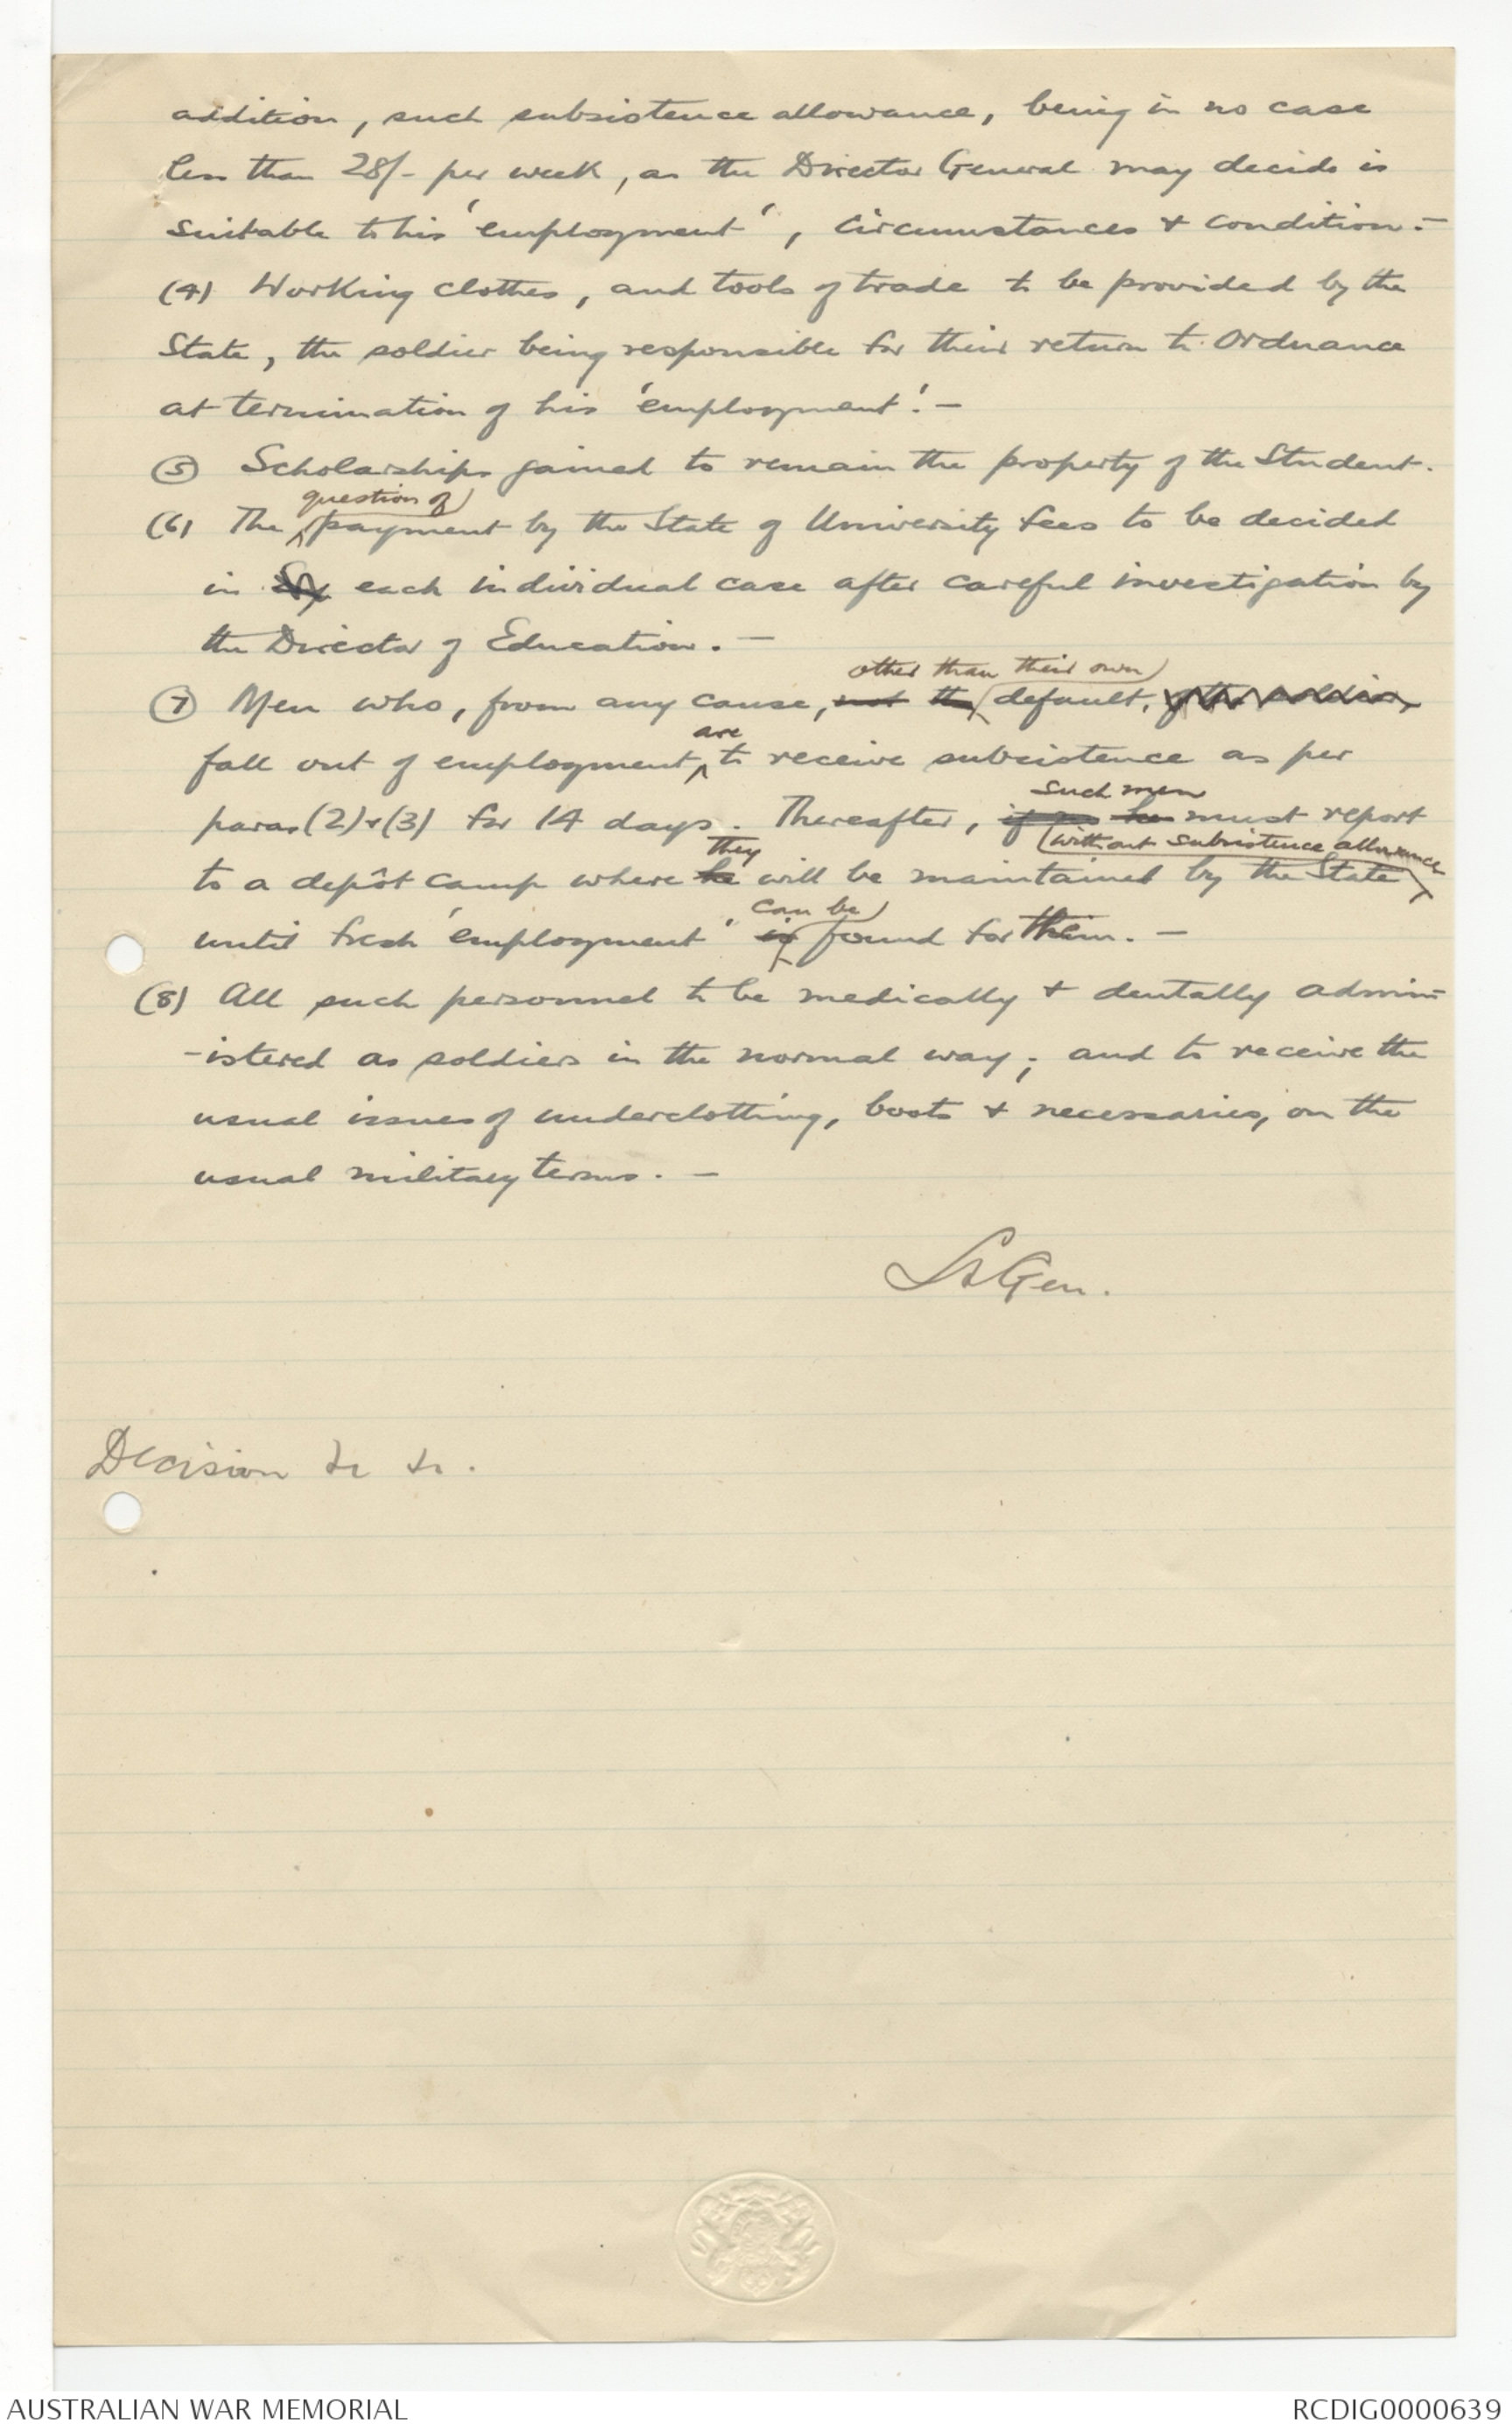 addition, such subsistence allowance, being in no case
less than 28/- per week, as the Director General may decide is
suitable to his 'employment', circumstances & condition. -
(4) Working clothes, and tools of trade to be provided by the
State, the soldier being responsible for their return to Ordnance
at termination of his 'employment'. -
(5) Scholarships gained to remain the property of the Student.
question of
(6) The payment by the State of University fees to be decided
in each individual case after careful investigation by
the Director of Education. -
other than their own
(7) Men who, from any cause, not the default, of the soldier,
are
fall out of employment, to receive subsistence as per
such men
paras (2) & (3) for 14 days. Thereafter, he must report
they
without subsistence allowance
to a depôt camp where he will be maintained by the State
can be
until fresh 'employment' is found for them. -
(8) All such personnel to be medically & dentally admin-
-istered as soldiers in the normal way; and to receive the
usual issues of underclothing, boots & necessaries, on the
usual military terms. -
Lt Gen.
Decision
AUSTRALIAN WAR MEMORIAL
RCDIG0000639